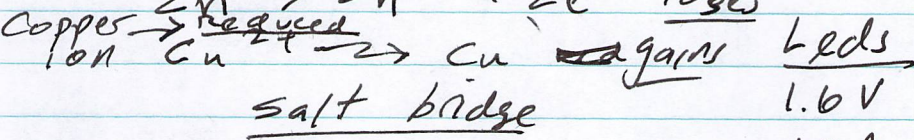 Copper → Reduced
ion Cu²⁺ → Cu gains Leds
salt bridge 1.6 V